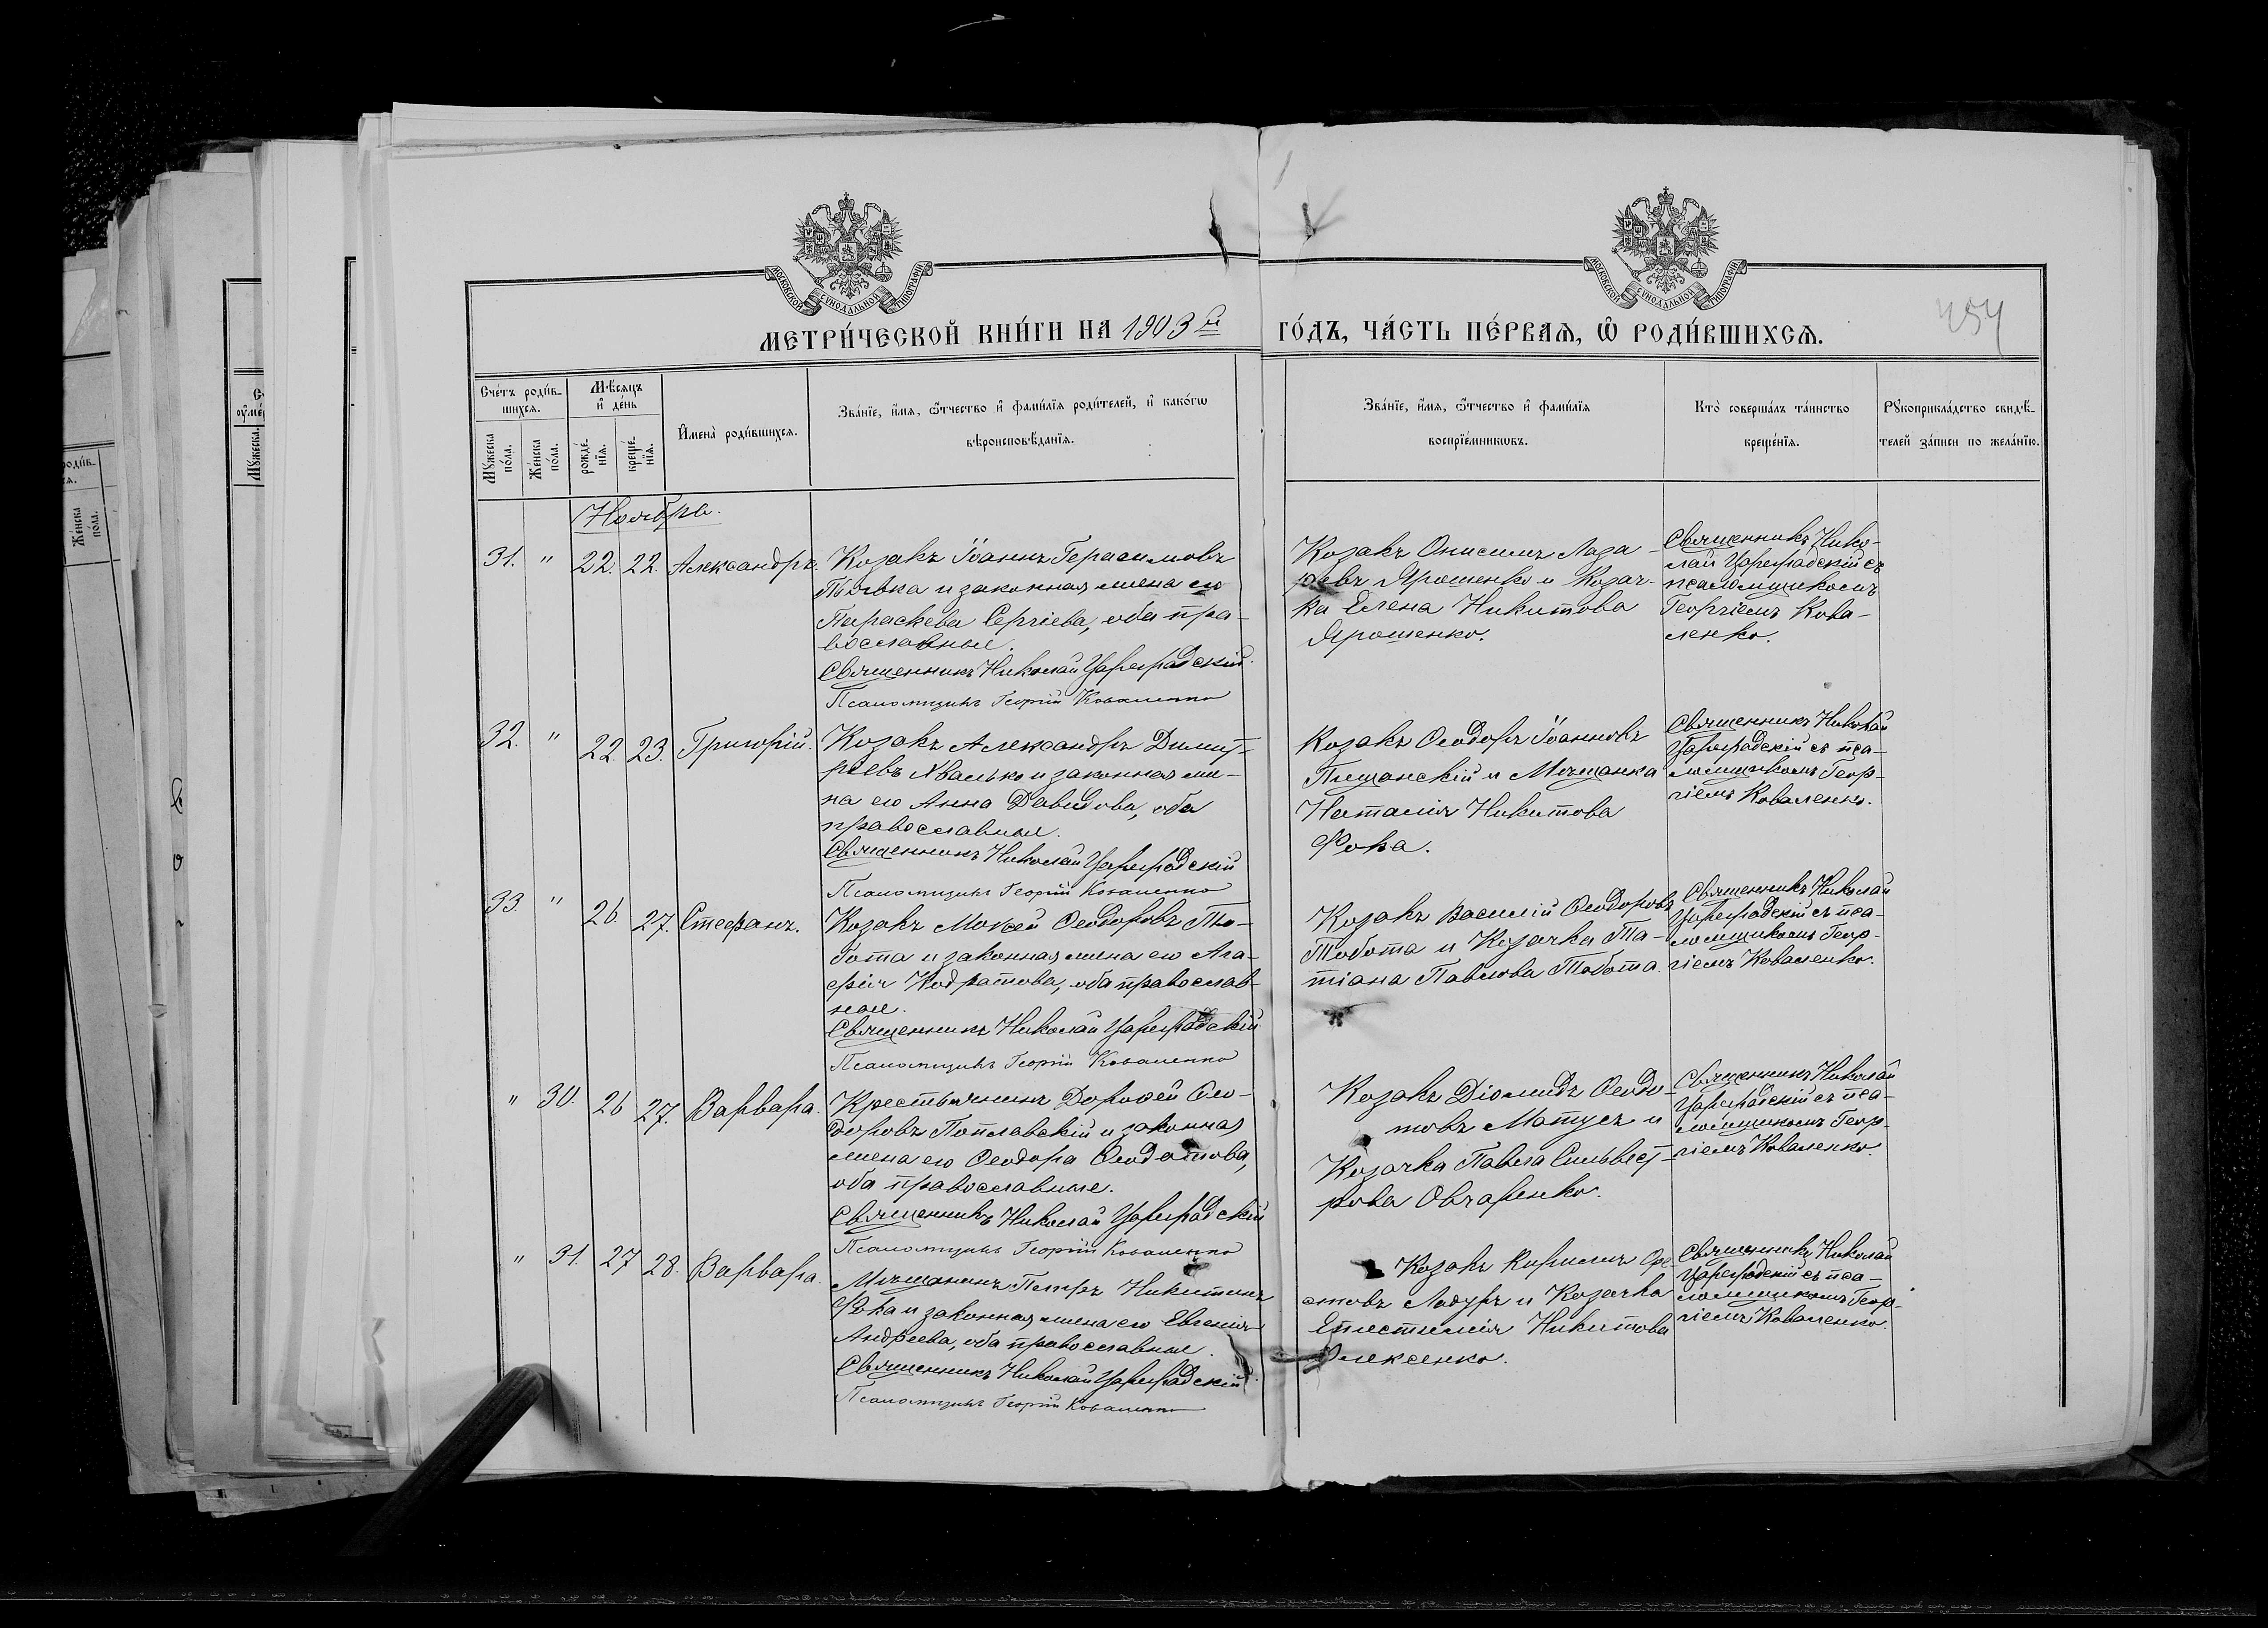 МОСКОВСКОЙ СѴНОДАЛЬНОЙ ТИПОГРАФІИ
МОСКОВСКОЙ СѴНОДАЛЬНОЙ ТИПОГРАФІИ
МЕТРИ́ЧЕСКОЙ КНИ́ГИ НА 1903 й ГО́ДЪ, ЧА́СТЬ ПЕ́РВАЯ, Ѡ҆ РОДИ́ВШИХСЯ.
454
Сче́тъ роди́в-
шихся.
Мꙋ́жеска
по́ла.
Же́нска
по́ла.
Мѣ́сяцъ
и҆ де́нь
рожде́-
нїя.
креще́-
нїя.
И҆мена̀ роди́вшихся.
Зва́нїе, и҆́мя, ѻ҆́тчество и҆ фами́лїя роди́телей, и҆ како́гѡ
вѣроисповѣ́данїя.
Зва́нїе, и҆́мя, ѻ҆́тчество и҆ фами́лїя
воспрїе́мникѡвъ.
Кто̀ соверша́лъ та́инство
креще́нїя.
Рꙋкоприкла́дство свидѣ́-
телей за́писи по жела́нїю.
Ноября.
31. " 22. 22. Александръ.
Козакъ Іоаннъ Герасимовъ
и законная жена его
Параскева Сергіева, оба пра-
вославные.
Священникъ Николай Цареградскій
Псаломщикъ Георгій Коваленко
Козакъ Онисимъ Лаза-
ревъ Ярошенко и Козач-
ка Елена Никитова
Ярошенко.
Священникъ Нико-
лай Цареградскій съ
псаломщикомъ
Георгіемъ Кова-
ленко.
32. " 22. 23. Григорій.
Козакъ Александръ Димит-
ріевъ Хвалько и законная же-
на его Анна Давидова, оба
православные.
Священникъ Николай Цареградскій
Псаломщикъ Георгій Коваленко
Козакъ Ѳеодоръ Іоанновъ
Пищанскій и Мѣщанка
Наталія Никитова
Фока.
Священникъ Николай
Цареградскій съ пса-
ломщикомъ Геор-
гіемъ Коваленко.
33. " 26 27. Стефанъ.
Козакъ Мокей Ѳеодоровъ То-
бота и законная жена его Ага-
фія Кодратова, оба православ-
ные.
Священникъ Николай Цареградскій
Псаломщикъ Георгій Коваленко
Козакъ Василій Ѳеодоровъ
Тобота и Козачка Та-
тіана Павлова Тобота.
Священникъ Николай
Цареградскій съ пса-
ломщикомъ Геор-
гіемъ Коваленко.
" 30. 26 27. Варвара.
Крестьянинъ Дороѳей Ѳео-
доровъ Поплавскій и законная
жена его Ѳеодора Ѳеодотова,
оба православные.
Священникъ Николай Цареградскій
Псаломщикъ Георгій Коваленко
Козакъ Діомидъ Ѳеодо-
товъ Матусъ и
Козачка Павла Сильвест-
рова Овчаренко.
Священникъ Николай
Цареградскій съ пса-
ломщикомъ Геор-
гіемъ Коваленко.
" 31. 27 28. Варвара.
Мѣщанинъ Петръ Никитинъ
Фока и законная жена его Евгенія
Андреева, оба православные.
Священникъ Николай Цареградскій
Псаломщикъ Георгій Коваленко
Козакъ Кириллъ Оре-
стовъ Ладуръ и Козачка
Епистимія Никитова
Алексенко.
Священникъ Николай
Цареградскій съ пса-
ломщикомъ Геор-
гіемъ Коваленко.